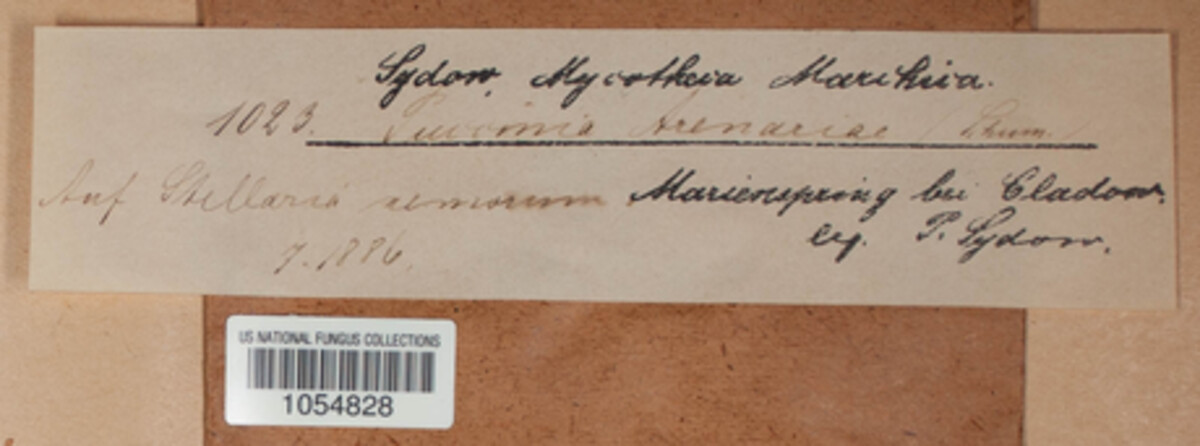 Sydow, Mycotheca Marchica.
1023. Puccinia Arenariae (Schum.)
Auf Stellaria nemorum Marienspring bei Cladow.
7. 1886. leg. P. Sydow.
US NATIONAL FUNGUS COLLECTIONS
1054828